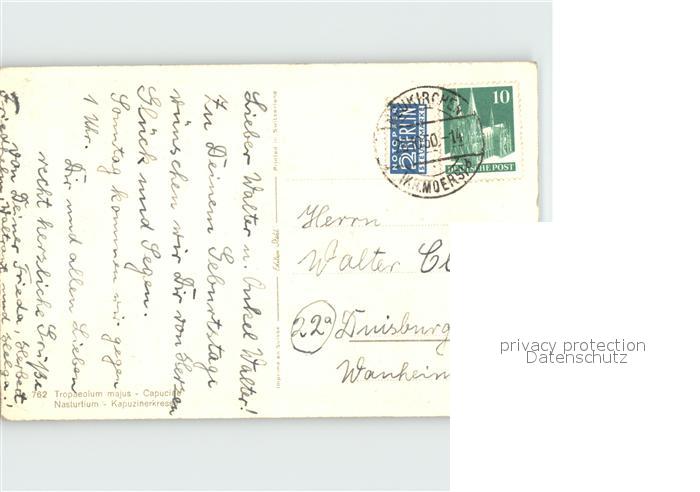 Lieber Walter u. Onkel Walter!
Zu Deinem Geburtstage
wünschen wir Dir von Herzen
Glück und Segen.
Sonntag kommen wir gegen
1 Uhr.
Dir und allen Lieben
recht herzliche Grüße
von Deiner Frieda, Herbert
Friedhelm, Waltraut und Helga!
762 Tropaeolum majus - Capucine
Nasturtium - Kapuzinerkresse
Printed in Switzerland
Imprimé en Suisse
NOTOPFER
2 BERLIN
STEUERMARKE
KIRCHEN
50.-14
(KR. MOERS)
10
DEUTSCHE POST
Herrn
Walter
22a Duisburg
Wanheim
privacy protection
Datenschutz